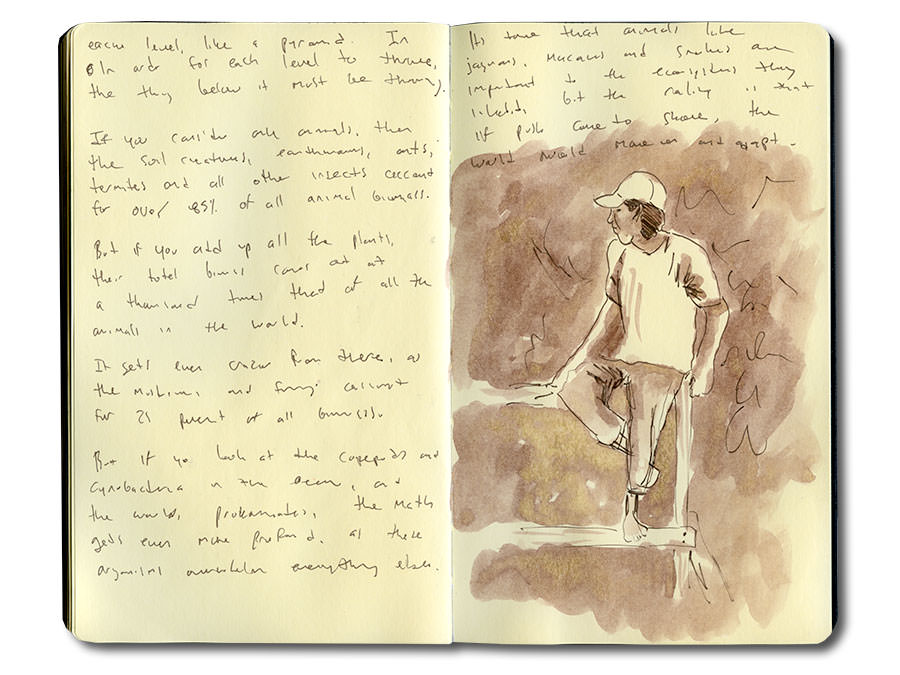 each level, like a pyramid. In
In order for each level to thrive,
the thing below it must be thriving.
If you consider only animals, then
the soil creatures, earthworms, ants,
termites and all other insects account
for over 85% of all animal biomass.
But if you add up all the plants,
their total biomass comes out at
a thousand times that of all the
animals in the world.
It gets even crazier from there, as
the mushrooms and fungi account
for 25 percent of all biomass.
But if you look at the copepods and
cyanobacteria in the ocean, and
the world's the math
gets even more profound, as these
organisms overwhelm everything else.
Its true that animals like
jaguars, macaws and snakes are
important to the ecosystems they
inhabit, but the reality is that
if push came to shove, the
world would move on and adapt.